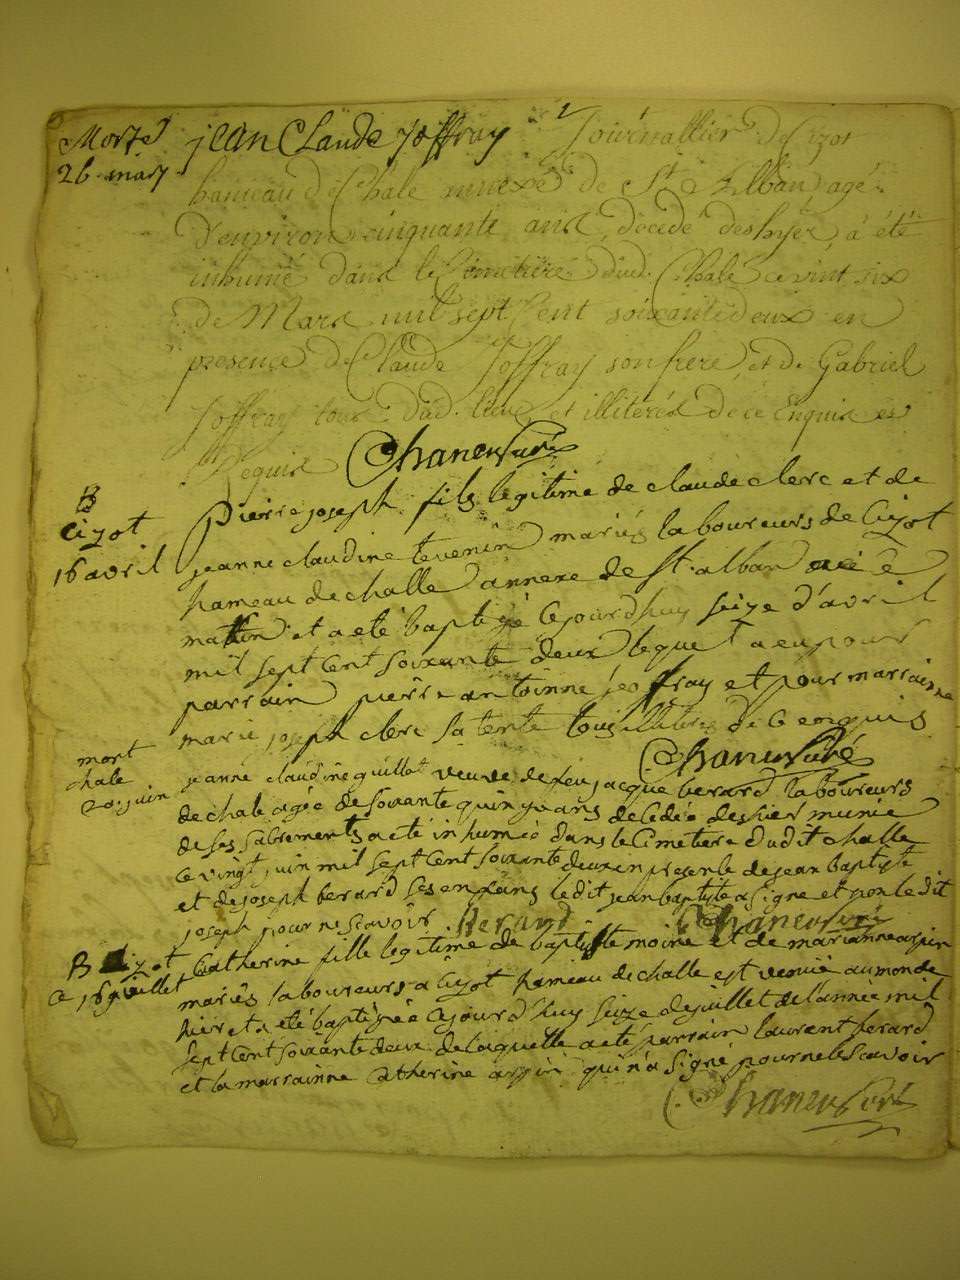 Morts jean Claude joffray journallier de Cizot
26 mars
hameau de Chale annexe de St Alban agé
d'environ cinquante ans, décédé deshyer, a été
inhumé dans le Cimetiere dud. Chale ce vint six
de Mars mil sept Cent soixante deux en
presence de Claude Joffray son frere, et de Gabriel
Joffray tous dud. lieu, et illiterés de ce Enquis et
Requis Chaneu Curé
B
Cizot
16 avril
pierre joseph fils legitime de claude clerc et de
jeanne claudine tevenin mariés laboureurs de Cizot
hameau de challe annexe de St. alban né ce
matin et a eté baptisé cejourdhuy seize d'avril
mil sept Cent soixante deux lequel a eu pour
parrain pierre antoinne jeoffray et pour marrainne
marie joseph clerc sa tente tous illitérés de ce enquis
Chaneu Curé
mort
chale
20. juin
jeanne claudine guillot veuve de feu jacque berard laboureurs
de chale agée de soixante quinze ans decedée deshier munie
de ses sacrements a eté inhumée dans le Cimetiere dudit challe
ce vingt juin mil sept cent soixante deux en presence de jean baptiste
et de joseph berard ses enfans ledit jean baptiste a signé et non ledit
joseph pour ne scavoir Berard Chaneu Curé
B Cizot
ce 16 juillet
Catherine fille legitime de baptiste moine et de marianne arpin
mariés laboureurs a Cizot hameau de challe est venuë au monde
hier et a eté baptisée cejourd'huy seize de juillet de l'année mil
sept cent soixante deux de laquelle a eté parrain laurent berard
et la marrainne Catherine arpin qui n'a signé pour ne le scavoir
Chaneu Curé